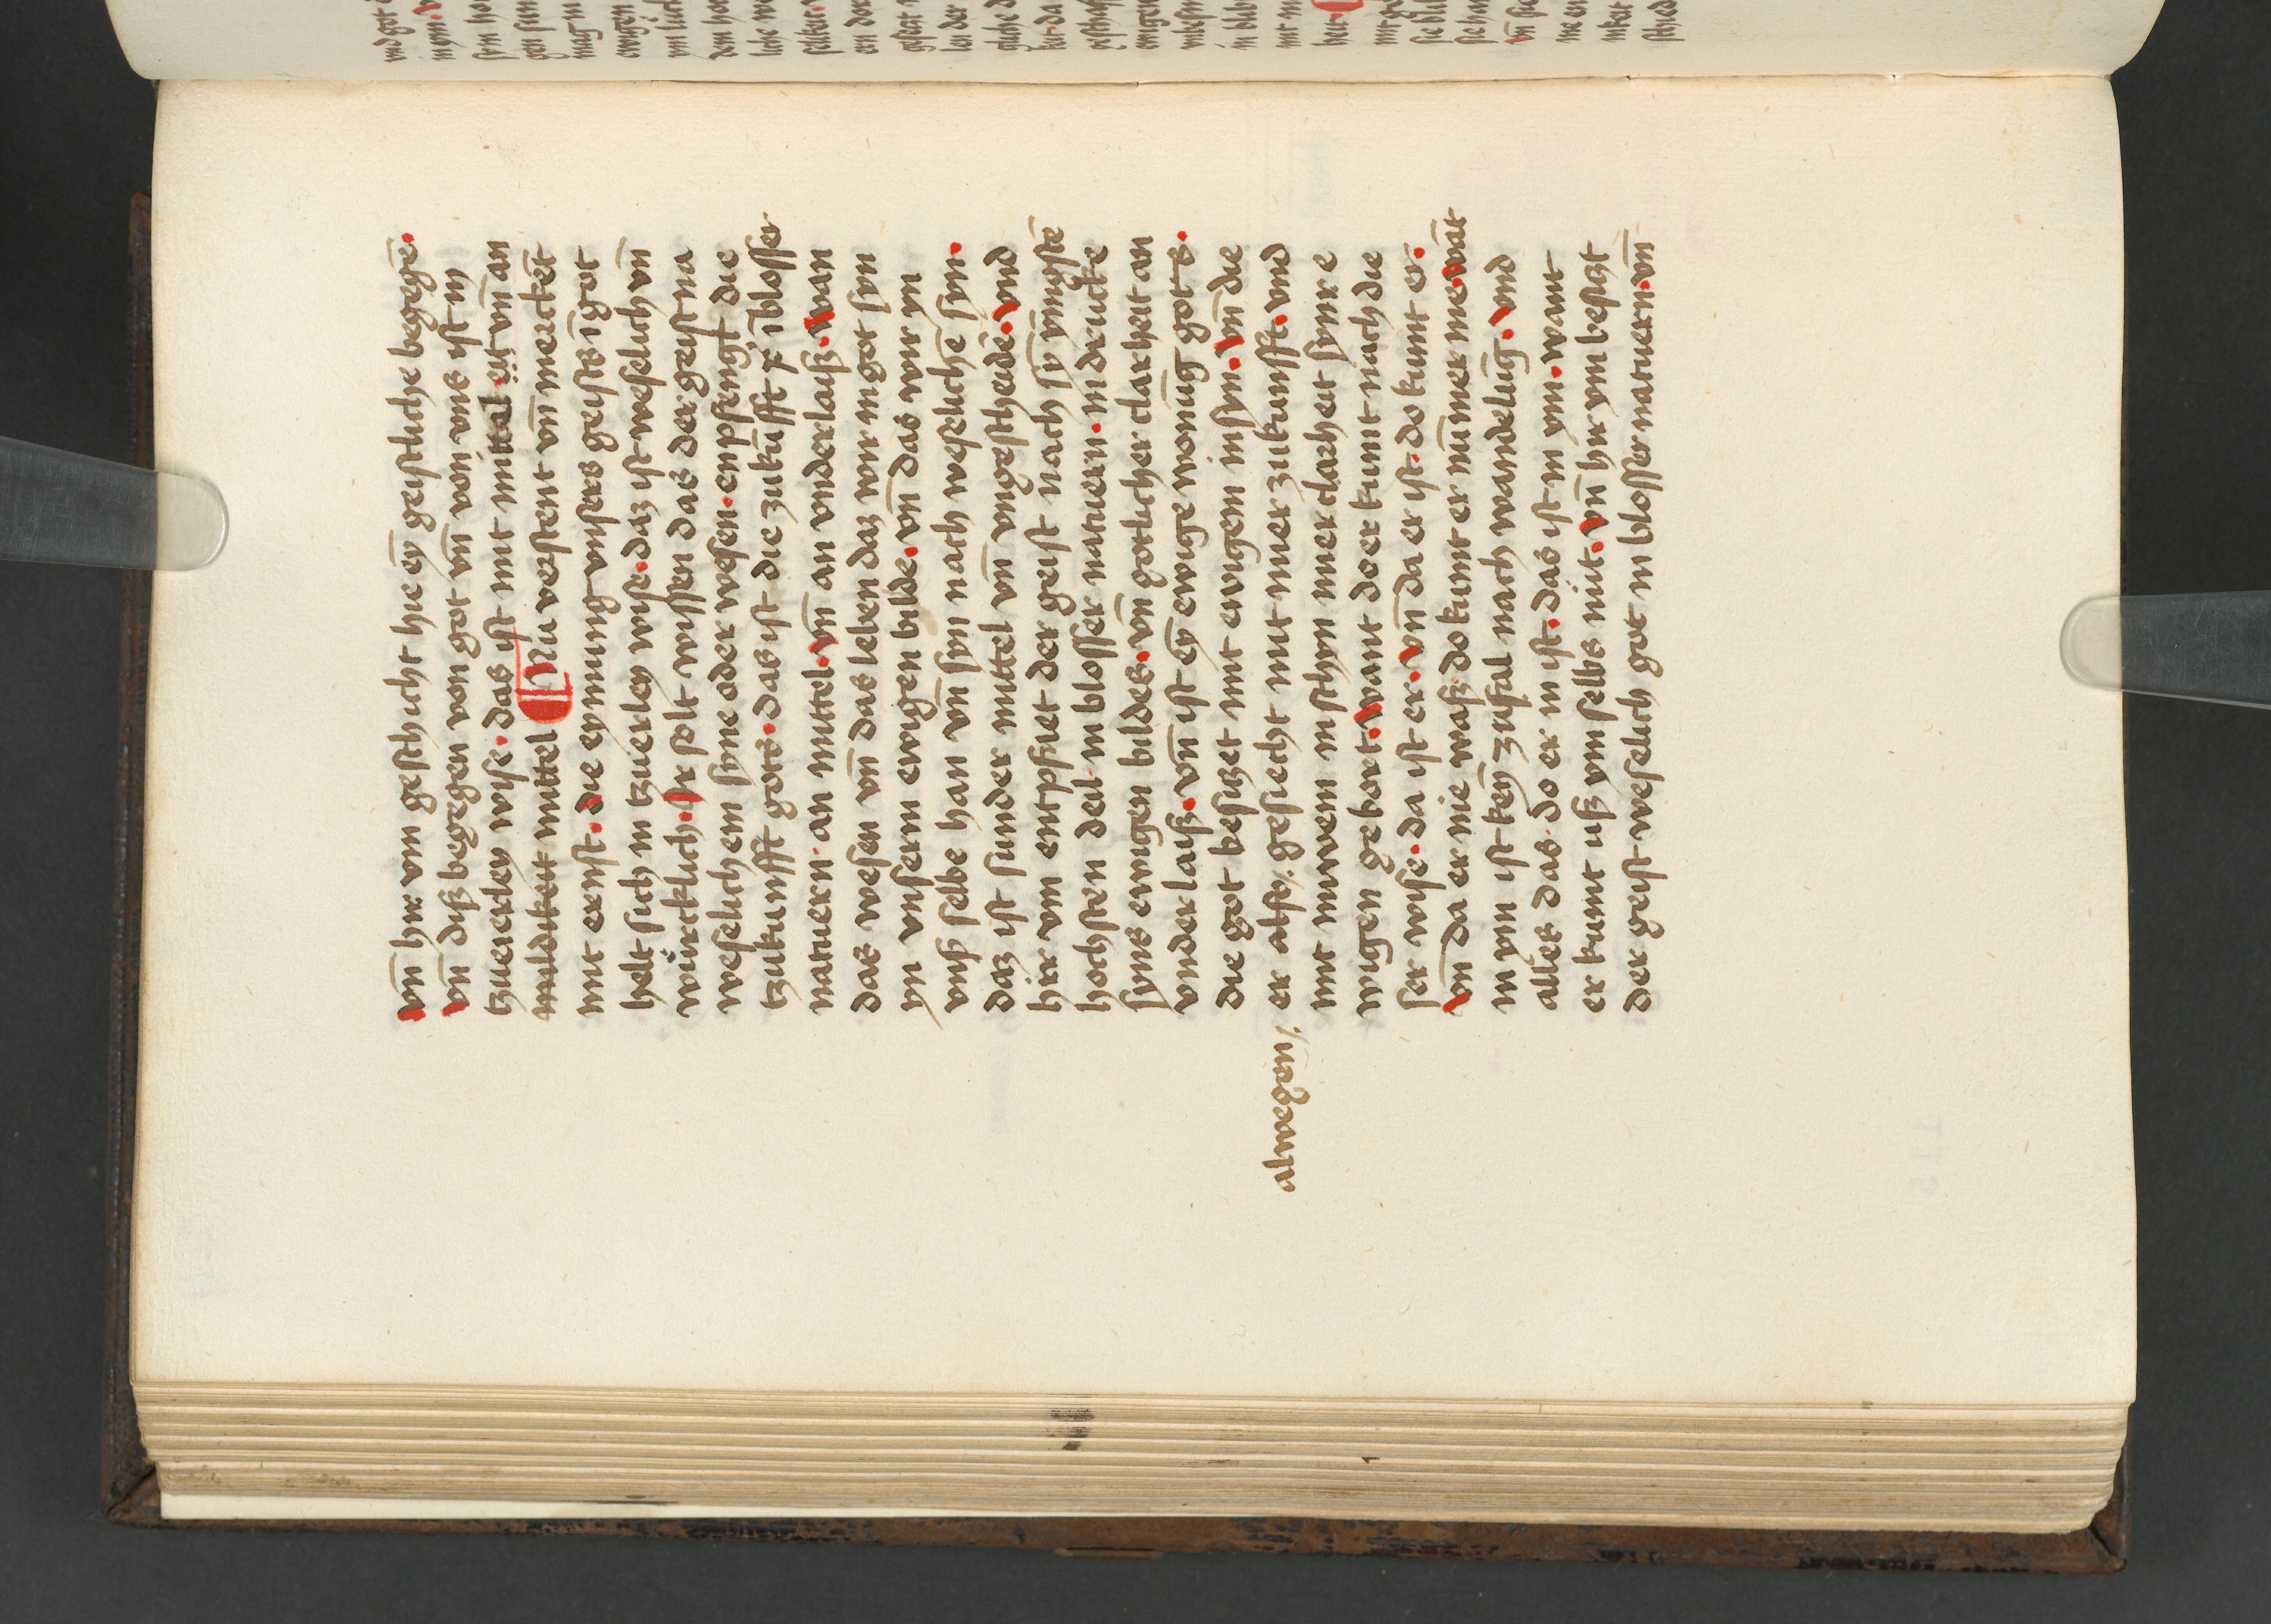 vn̄ hir vm geschicht hie eȳ geistliche begegē.
vn̄ diß begegen von got vn̄ von vns ist in
tzweierley wise. das ist mit mittal eit vn̄ an
mildikeit mittel Nu verstent vn̄ merckēt
mit ernst. die eynung vnsers geists ī got
helt sich in tzuerley wise. daz ist weselich vn̄
würcklich. Ir solt wissen das der geist na
weselichem syne oder wesen. enpfengt die
tzukunfft gots. das ist die zukūfft x̄ ī blosser
natuern. an mittel. vn̄ an vnderlaiß. wan
das wesen vn̄ das leben daz wir in got syn
yn vnserm ewigen bilde. vn̄ das wir yn
vnß selbe han vn̄ syn nach weselichē syn.
daz ist sunder mittel vn̄ vngescheidē. vnd
hir vm entpfiet der geist nach sȳ ȳnigstē
hochsten deil in blosser natuern. indrucke
syns ewigen bildes. vn̄ gotlicher clarheit an
vnderlaiß. vn̄ ist eȳ ewige wonūg gots.
die got besitzet mit ewigem insyn. vn̄ die
alwegen/. er alst/. gesiecht mit nuer zukunfft. vnd
mit nuwem inschyn nuer clarheit synre
wigen gebort. want do er kumt nach die
ser wise. da ist er. vn̄ da er ist. do kumt er.
vn̄ da er nie waß. do kumt er nūmer me. wāt
in ym ist keȳ zufal nach wandelūg. vnd
alles das. do er in ist. das ist in ym. want
er kumt uß ym selbs nit. vn̄ hir ym besitzt
der geist weselich got in blosser natuern. vn̄